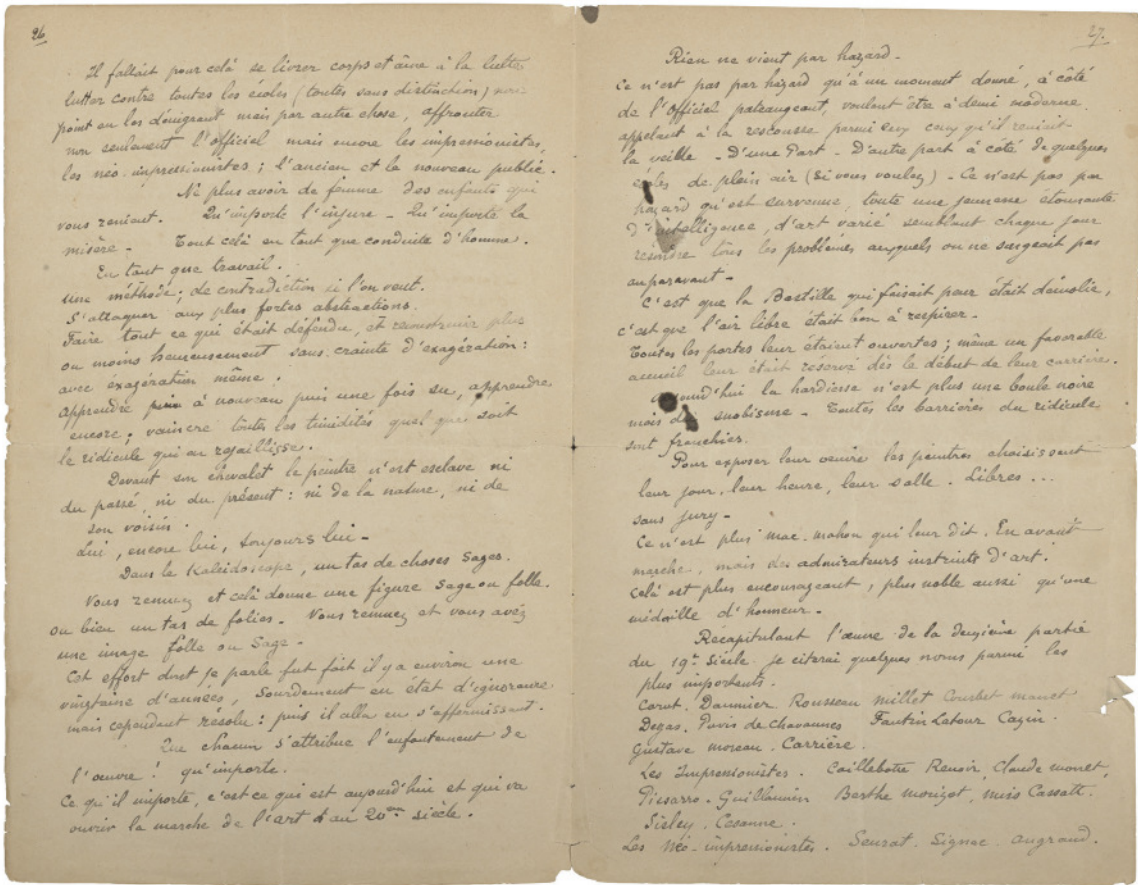 26
Il fallait pour celà se livrer corps et âme à la lutte
lutter contre toutes les écoles (toutes sans distinction) non
point en les dénigrant mais par autre chose, affronter
non seulement l'officiel mais encore les impressionistes,
les néo-impressionistes ; l'ancien et le nouveau public.
Ne plus avoir de femme des enfants qui
vous renient. Qu'importe l'injure - Qu'importe la
misère - Tout celà en tant que conduite d'homme.
En tant que travail.
une méthode ; de contradiction si l'on veut.
S'attaquer aux plus fortes abstractions.
Faire tout ce qui était défendu, et reconstruir plus
ou moins heureusement sans crainte d'exagération :
avec exagération même.
Apprendre à nouveau puis une fois su, apprendre
encore ; vaincre toutes les timidités quel que soit
le ridicule qui en rejaillisse.
Devant son chevalet le peintre n'est esclave ni
du passé, ni du présent : ni de la nature, ni de
son voisin.
Lui, encore lui, toujours lui -
Dans le Kaleidoscope, un tas de choses Sages.
Vous remuez et celà donne une figure Sage ou folle.
ou bien un tas de folies. - Vous remuez et vous avez
une image folle ou Sage -
Cet effort dont je parle fut fait il y a environ une
vingtaine d'années, Sourdement en état d'ignorance
mais cependant résolu : puis il alla en s'affermissant.
Que chacun s'attribue l'enfantement de
l'œuvre ! qu'importe.
Ce qu'il importe, c'est ce qui est aujourd'hui et qui va
ouvrir la marche de l'art d'au 20me siècle.
27.
Rien ne vient par hazard -
Ce n'est pas par hazard qu'à un moment donné, à côté
de l'Officiel pataugeant, voulant être à demi moderne.
appelant à la rescousse parmi eux ceux qu'il reniait
la veille - D'une Part - D'autre part à coté de quelques
écoles de plein air (Si vous voulez) - Ce n'est pas par
hazard qu'est survenue, toute une jeunesse étonnante
d'intelligence, d'art varié semblant chaque jour
résoudre tous les problèmes auxquels on ne songeait pas
auparavant -
C'est que la Bastille qui faisait peur était démolie,
c'est que l'air libre était bon à respirer -
Toutes les portes leur étaient ouvertes ; même un favorable
accueil leur était réservé dès le début de leur carrière.
Aujourd'hui la hardiesse n'est plus une boule noire
mais du snobisme - Toutes les barrières du ridicule
sont franchies.
Pour exposer leur oeuvre les peintres choisissent
leur jour, leur heure, leur salle. Libres ...
sans jury -
Ce n'est plus mac-mahon qui leur dit. En avant
marche, mais des admirateurs instruits d'art.
Celà est plus encourageant, plus noble aussi qu'une
médaille d'honneur -
Récapitulant l'œuvre de la deuxième partie
du 19e Siècle je citerai quelques noms parmi les
plus importants.
Corot. Daumier. Rousseau Millet Courbet manet
Degas. Puvis de Chavannes Fantin Latour Cazin.
Gustave moreau. Carrière.
Les Impressionistes. Caillebotte Renoir, Claude monet,
Pissarro - Guillaumin Berthe morizot, miss Cassatt.
Sisley. Cesanne.
Les Néo-impressionistes. Seurat. Signac. angrand.